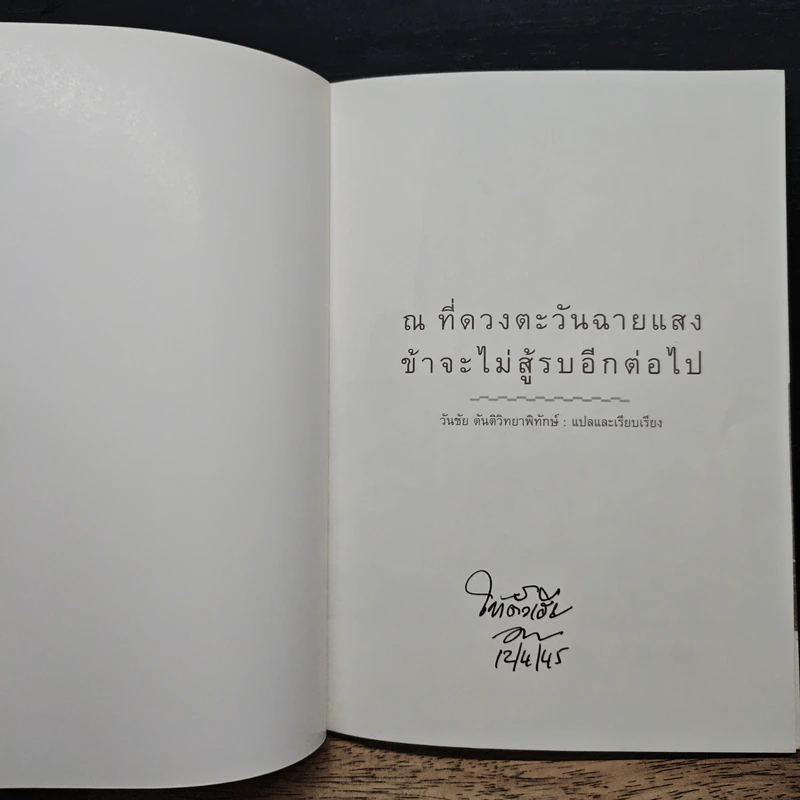 ณ ที่ดวงตะวันฉายแสง
ข้าจะไม่สู้รบอีกต่อไป
วันชัย ตันติวิทยาพิทักษ์ : แปลและเรียบเรียง
12/4/45